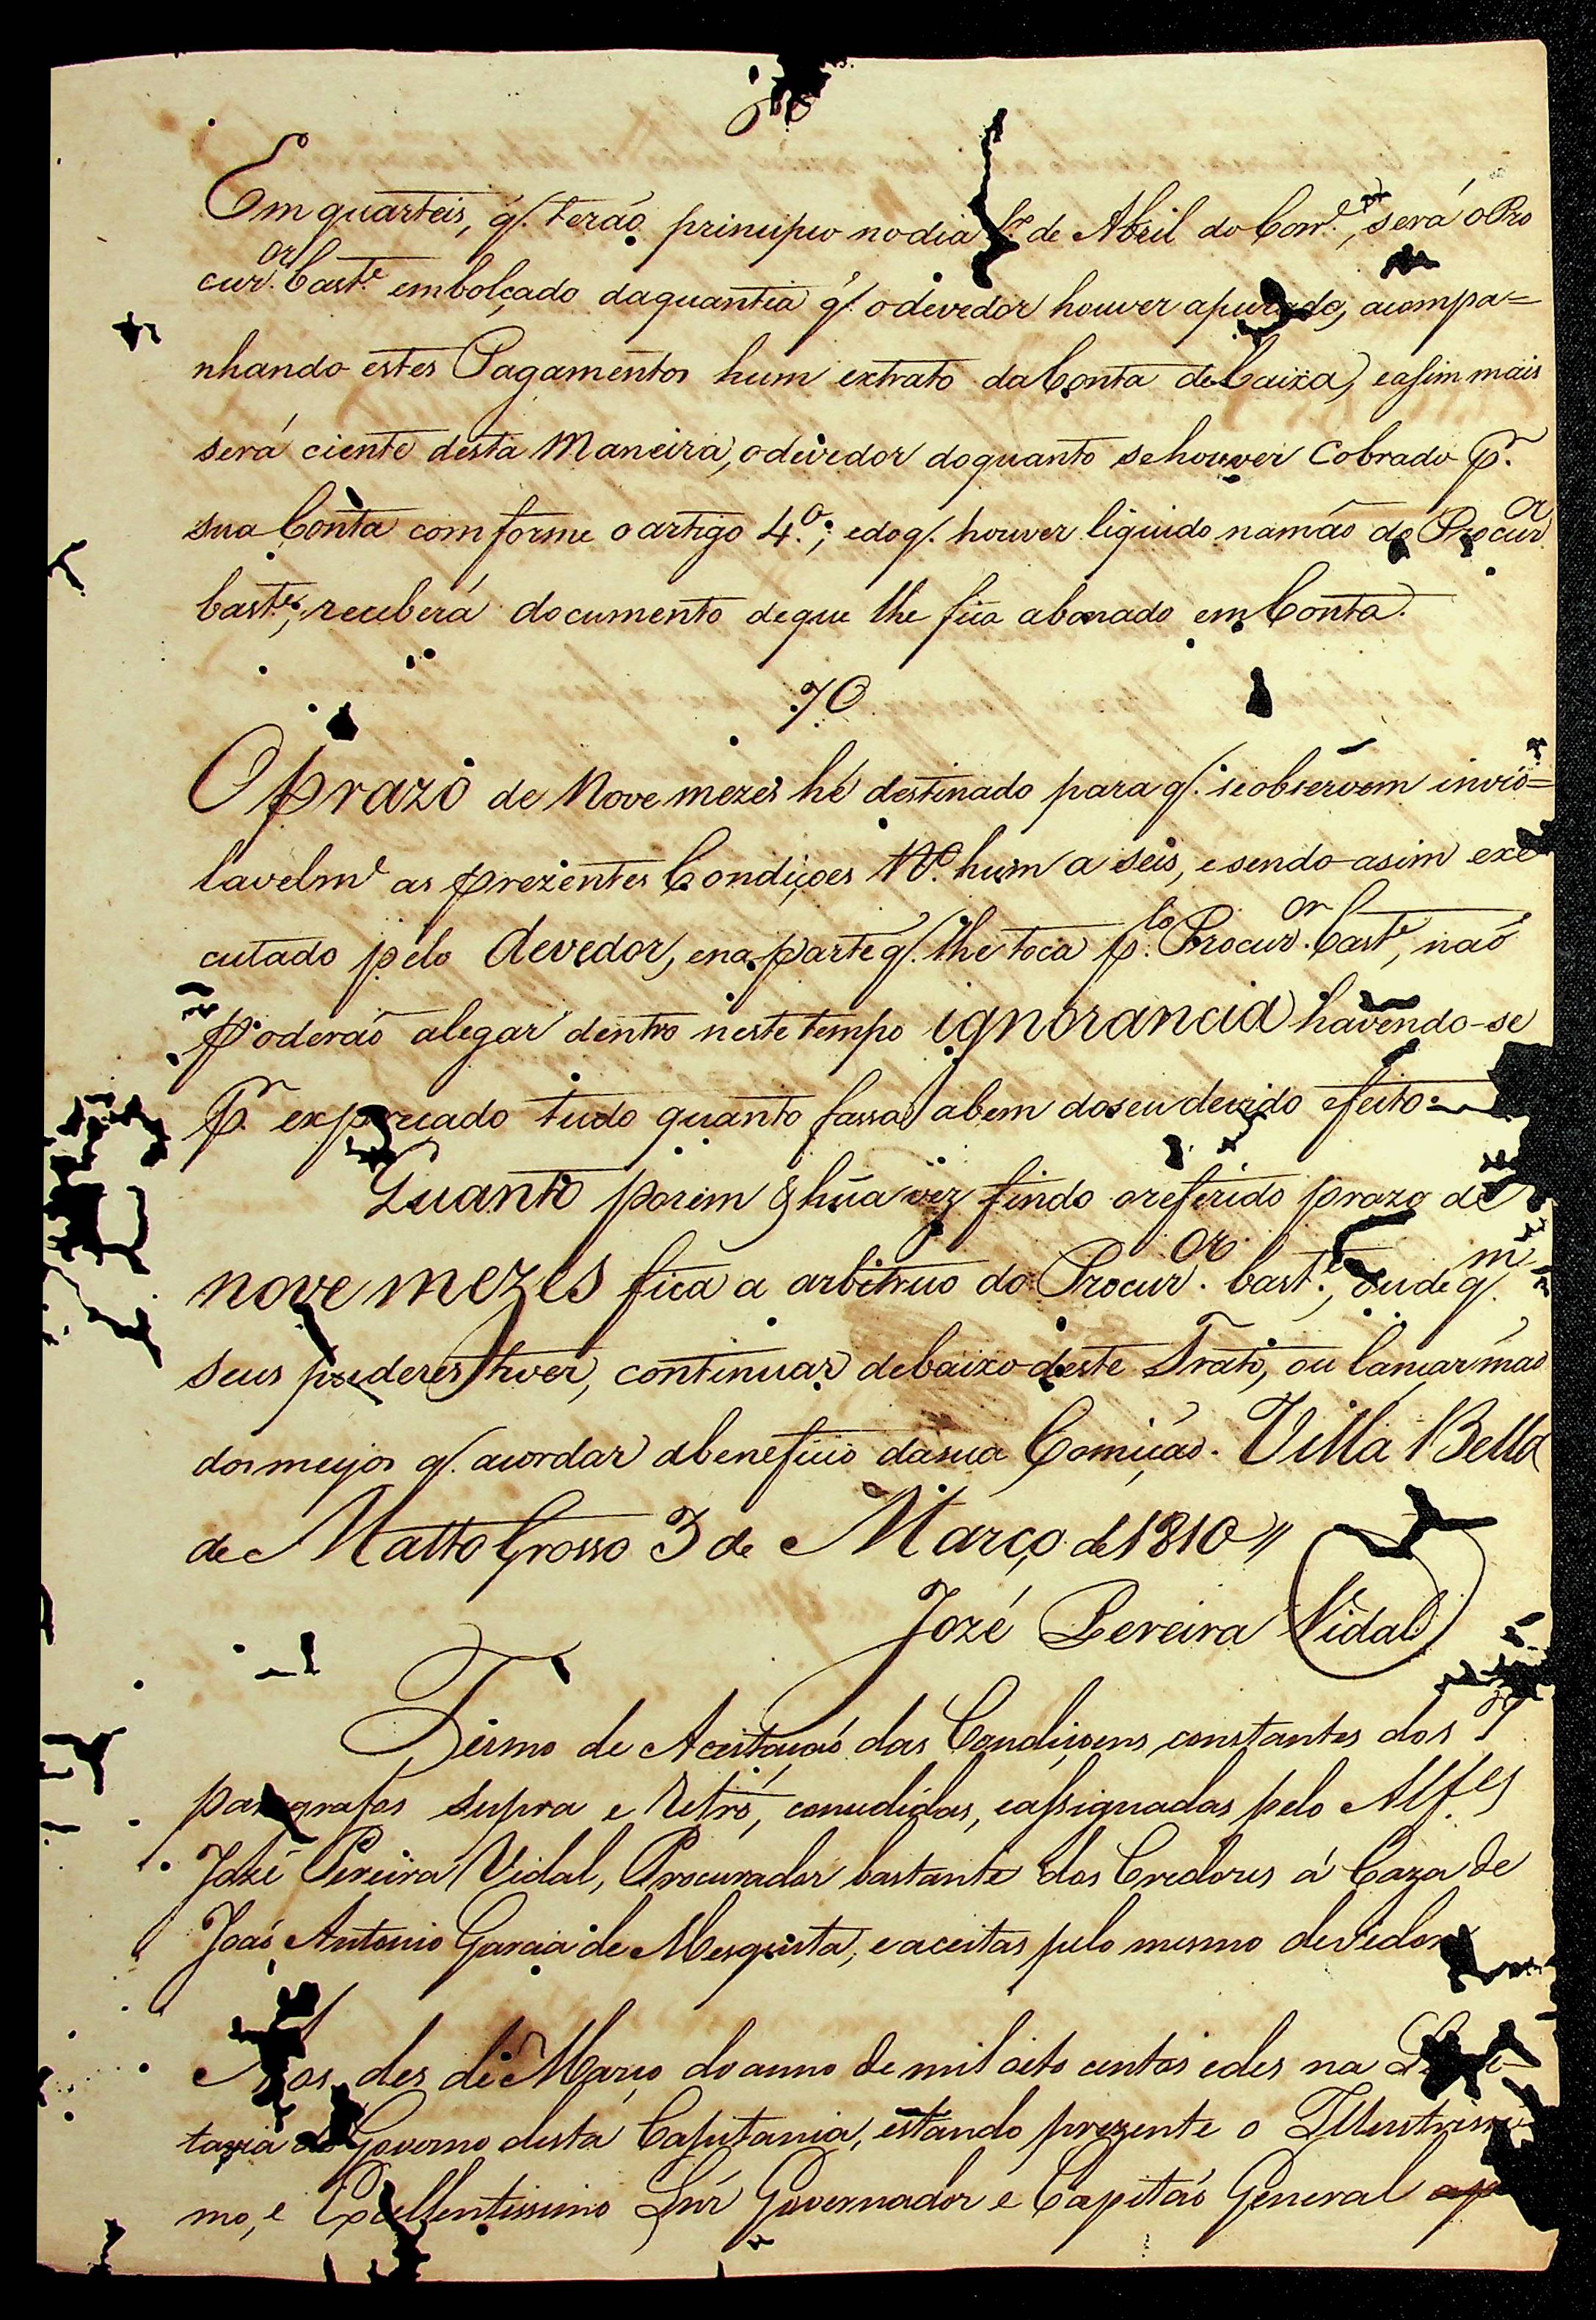 6º
Em quarteis, q̃. terão principio no dia 1º de Abril do Corr.e, será o Pro
cur.or bast.e embolçado daquantia q̃. o devedor houver apurado, acompa=
nhando estes Pagamentos hum extrato da Conta de Caixa, easim mais
será ciente desta Maneira, odevedor doquanto sehouver Cobrado p.r
sua Conta comforme o artigo 4.º; edoq. houver liquido namão do Procur.or
bast.e, receberá documento deque lhe fica abonado em Conta.
7º
O prazo de Nove mezes hé destinado para q. seobservem invio=
lavelm.e as prezentes Condiçoes Nº. hum a seis, esendo asim exe
cutado pelo devedor, ena parte q. lhe toca p.lo Procur.or bast.e, não
poderão alegar dentro neste tempo ignorancia havendo-se
p.r expreçado tudo quanto fassa abem doseu devido efeito.
Quanto porem hũa vez findo oreferido prazo de
nove mezes fica a arbitrio do Procur.or bast.e, oude q.m
seus puderes tiver, continuar debaixo deste Trato, ou lançar mão
dos meyos q. acordar abeneficio dasua Comição. Villa Bella
de Matto Grosso 3 de Março de 1810 //
Jozé Pereira Vidal
Termo de Aceitação das Condiçoens constantes dos 7
paragrafos supra e retró, concedidas, eassignadas pelo Alf.es
José Pereira Vidal, Procurador bastante dos Credores á Caza de
João Antonio Garcia de Mesquita, eaceitas pelo mesmo devedor
Aos des de Março do anno de mil oito centos edes na Secre-
taria do Governo desta Capitania, estando prezente o Illustrissi-
mo, e Excellentissimo Snr Governador e Capitão General